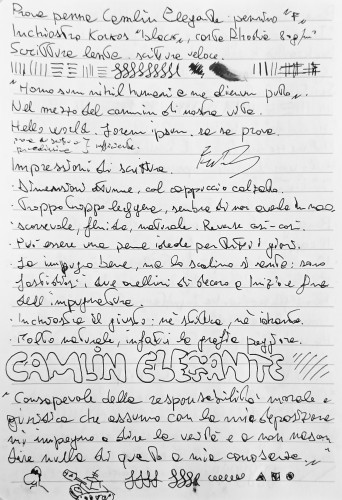 Prova penna Camlin Elegante - pennino "F"
Inchiostro Kores "black", carta Rhodia
Scrittura lenta, scrittura veloce.
"Homo sum nihil humani a me alienum puto"
Nel mezzo del cammin di nostra vita.
Hello world. Lorem ipsum. sa sa prova.
Impressioni di scrittura.
· Dimensioni ottime, col cappuccio calzato.
· Troppo troppo leggera, sembra di non averla in mano
scorrevole, fluida, naturale. Reverse così-così.
· Può essere una penna ideale per tutti i giorni.
· La impugno bene, ma lo scalino si sente: sono
fastidiosi i due anellini di decoro a inizio e fine
dell'impugnatura.
· Inchiostra il giusto: nè stitica, nè idrante.
· Molto naturale, infatti la grafia peggiora.
CAMLIN ELEGANTE
"Consapevole della responsabilità morale e
giuridica che assumo con la mia deposizione
mi impegno a dire la verità e a non nascon
dere nulla di quanto a mia conoscenza."